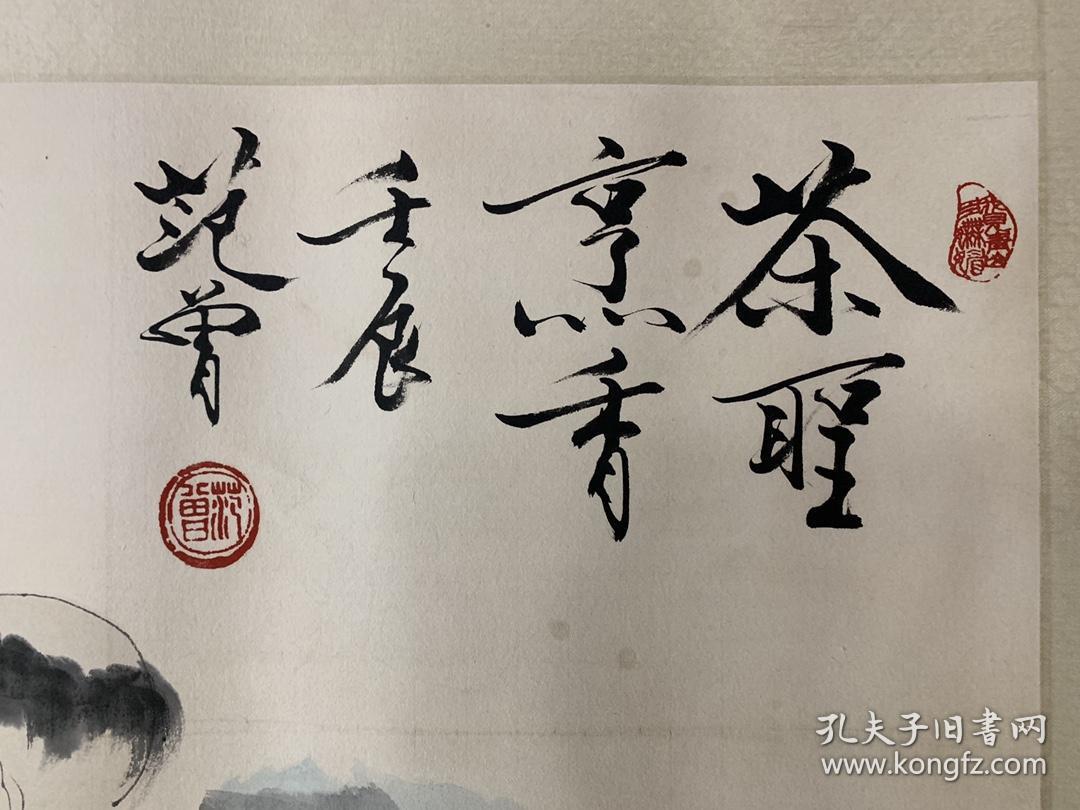 茶聖
烹香
壬辰
范曾
范曾
孔夫子旧书网
www.kongfz.com